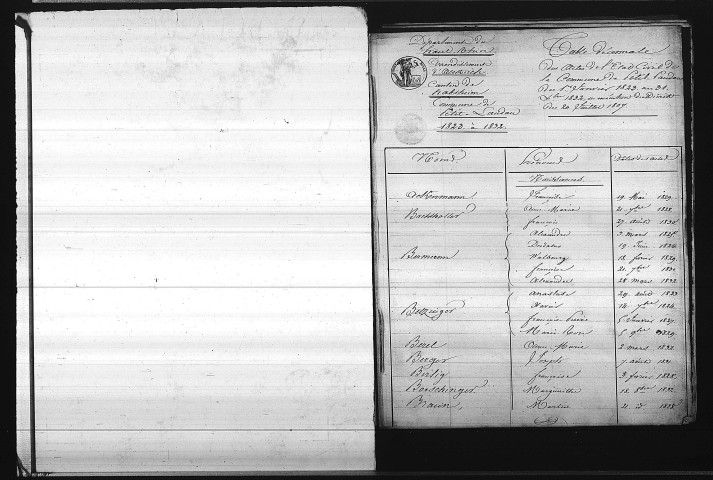 Département du
haut Rhin
Arrondissement
d'altkirch
Canton de
habsheim
Commune de
Petit-Landau
1823 à 1832
Table Décennale
des Actes de l'Etat Civil de
la Commune de Petit Landau
du 1er Janvier 1823 au 31
Xbre 1832, en exécution du Décret
du 20 Juillet 1807.
Noms Prénoms Dates des actes
Naissances
Ackermann françoise 19 Mai 1829
Anne Marie 21 7bre 1828
françois 27 août 1830
Alexandre 3 mars
19 Juin 1824
Baumann Walburg 18 février 1829
françoise 21 7bre
Alexandre 28 mars 1832
anastase 29 août 1823
Xavier 14 7bre 1824
Bellinger françois Pierre 5 Janvier 1827
Marie Rose 5 9bre 1829
Anne Marie 2 mars 1832
Berger Joseph 7 août
françoise 3 février 1828
Marguerithe 18 8bre 1832
Braun Martin 21 d° 1828